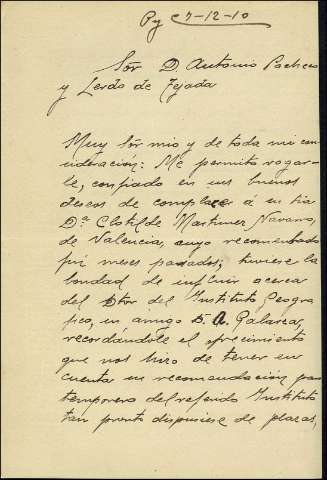 7-12-10
Sór D. Antonio Pacheco
y Lerdo de Tejada
Muy Sór mio y de toda mi con
sideración: Me permito rogar-
le, confiado en sus buenos
deseos de complacer á su tia
Dª Clotilde Martinez Navarro,
de Valencia, cuyo recomendado
fuí meses pasados, tuviese la
bondad de influir acerca
del Dtor del Instituto Geogra
fico, su amigo D. A. Galarza,
recordándole el ofrecimiento
que nos hizo de tener en
cuenta su recomendación para
temporero del referido Instituto
tan pronto dispusiese de plazas,